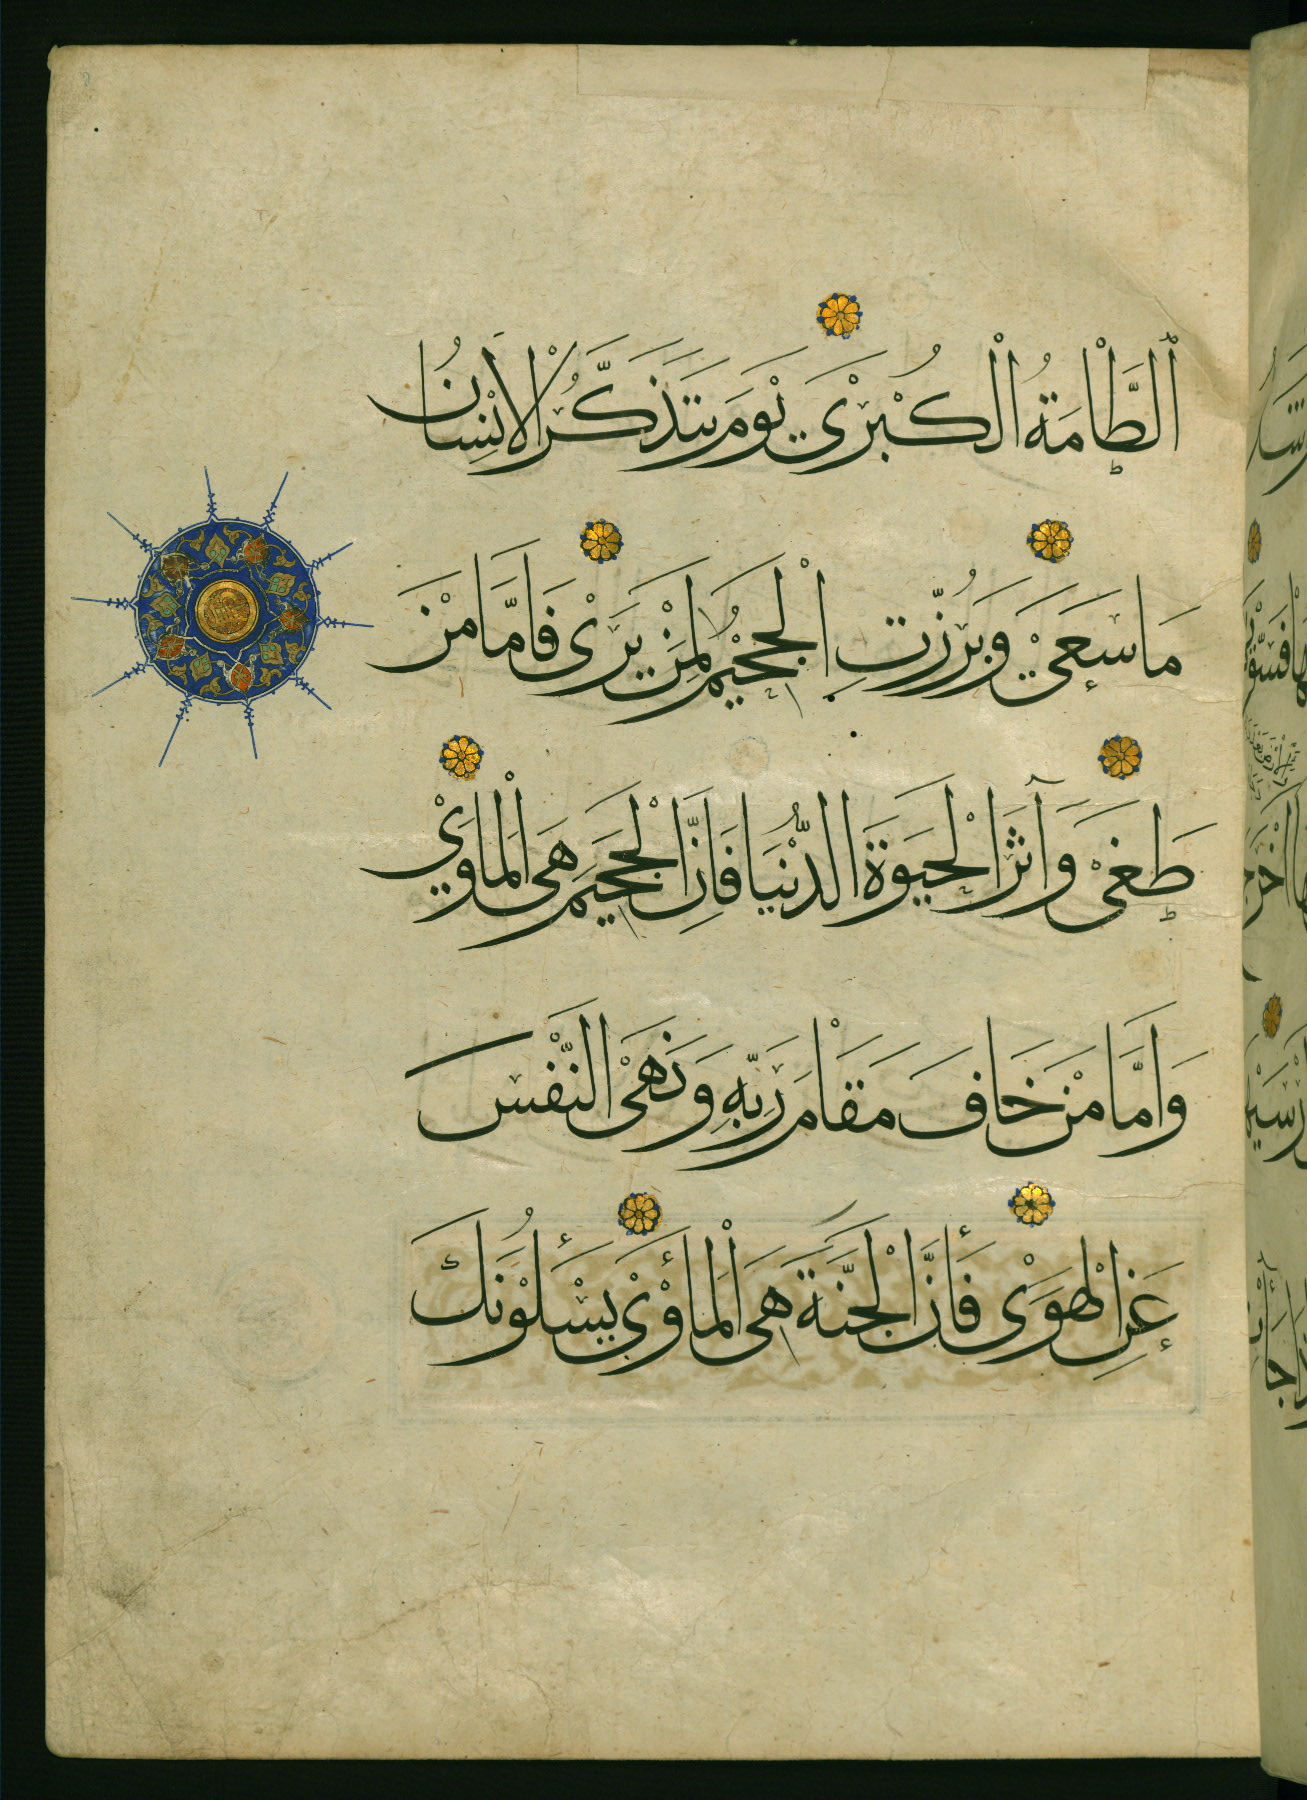 ٱلطَّامَةُ الْكُبْرَىٰ يَوْمَ يَتَذَكَّرُ الْاِنْسَانُ
مَا سَعَىٰ وَبُرِّزَتِ الْجَحِيْمُ لِمَنْ يَرَىٰ فَاَمَّا مَنْ
طَغَىٰ وَآثَرَ الْحَيَوةَ الدُّنْيَا فَاِنَّ الْجَحَيَمَ هِىَ الْمَاوَىٰ
وَاَمَّا مَنْ خَافَ مَقَامَ رَبِّهِ وَنَهَىٰ النَّفْسَ
عَنِ الْهَوَىٰ فَأِنَّ الْجَنَّةَ هِىَ الْمَأْوَىٰ يَسْـَٔلُوْنَكَ